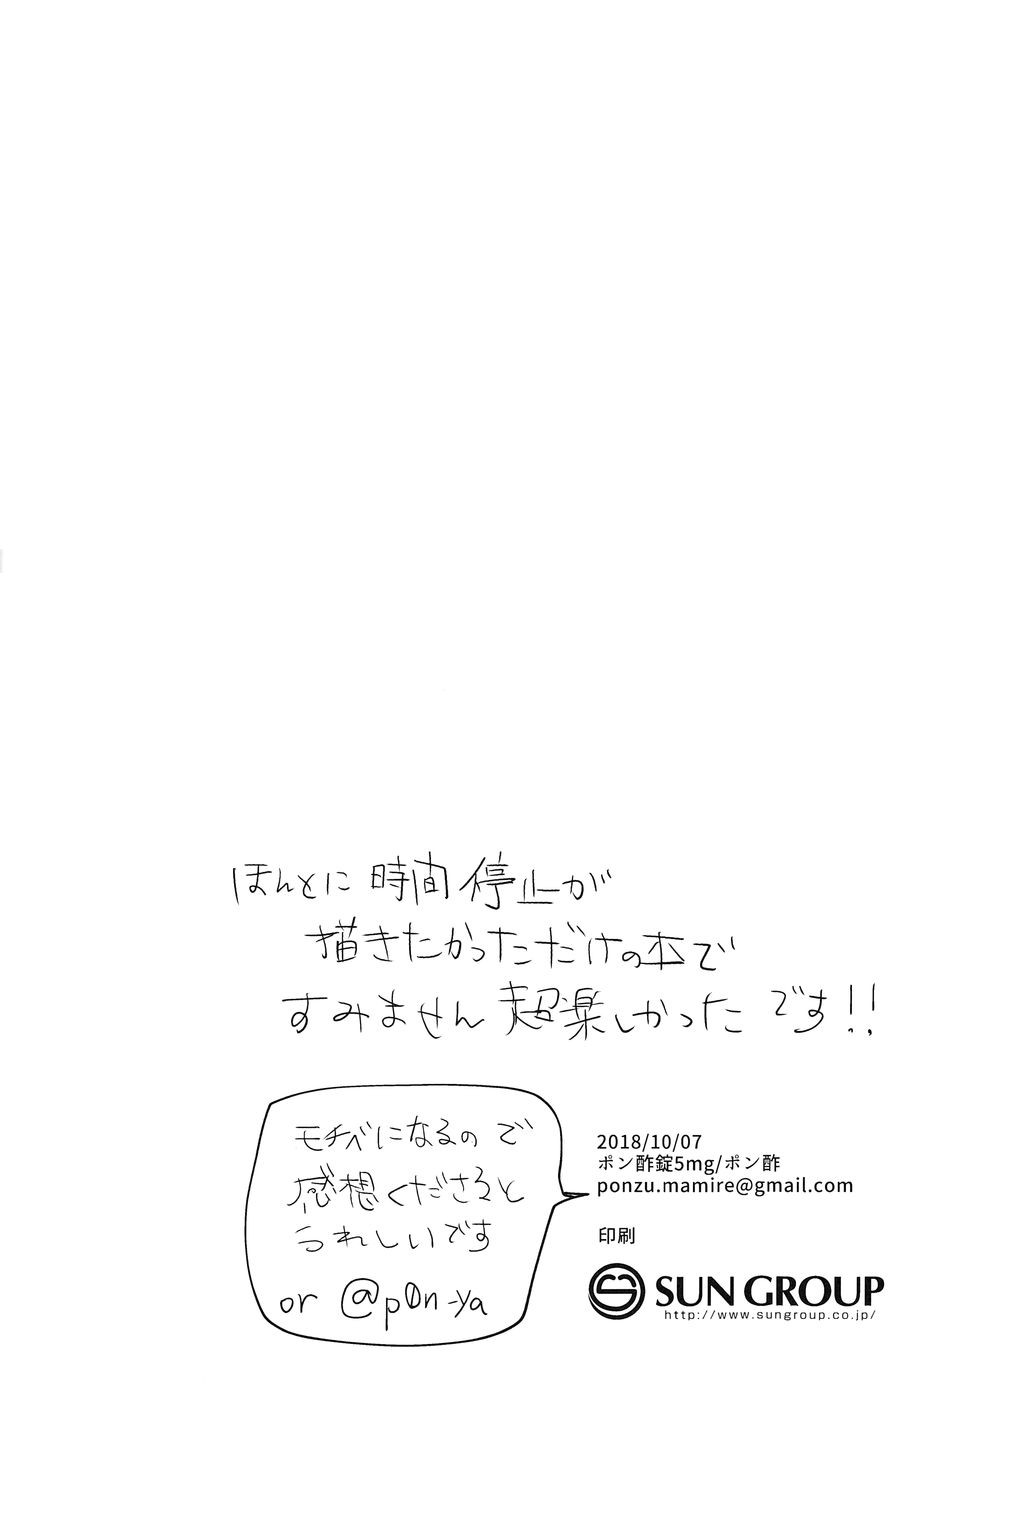 ほんとに 時間停止が
描きたかっただけの本で
すみません 超楽しかった です!!
モチベになるので
感想くださると
うれしいです
or @p0n_ya
2018/10/07
ポン酢錠5mg/ポン酢
ponzu.mamire@gmail.com
印刷
SUN GROUP
http://www.sungroup.co.jp/